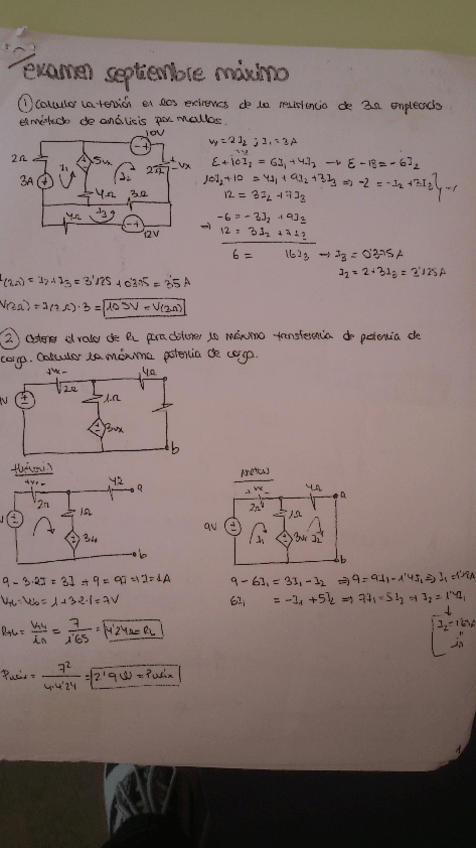 examen septiembre máximo
① Calcular la tensión en los extremos de la resistencia de 3Ω empleando
el método de análisis por mallas.
10V
2Ω
5vx
2Ω
+ - vx
3A
I1
I2
4Ω
3Ω
4Ω
I3
12V
vx = 2I2 ; I1 = 3A
E + 10I2 = 6I1 + 4I2 → E - 18 = -6I2
10I2 + 10 = 4I1 + 9I2 + 3I3 ⇒ -2 = -I2 + 3I3
12 = 3I2 + 7I3
⇒ -6 = -3I2 + 9I3
12 = 3I2 + 7I3
6 = 16I3 → I3 = 0'375A
I2 = 2 + 3I3 = 3'125A
I(3Ω) = I2 + I3 = 3'125 + 0'375 = 3'5A
V(3Ω) = I(3Ω) · 3 = 10'5V = V(3Ω)
② Obtener el valor de RL para obtener la máxima transferencia de potencia de
carga. Calcular la máxima potencia de carga.
+vx-
2Ω
4Ω
1Ω
3vx
b
thévenin
+vx-
2Ω
4Ω
a
1Ω
3vx
b
Norton
+ vx -
2Ω
4Ω
a
1Ω
9V
I1
3vx
I2
b
9 - 3·2I = 3I → 9 = 9I → I = 1A
Vth = Vab = 1 + 3·2·1 = 7V
9 - 6I1 = 3I1 - I2 ⇒ 9 = 9I1 - 1'4I1 ⇒
6I1 = -I1 + 5I2 ⇒ 7I1 = 5I2 ⇒ I2 = 1'4I1
in
Rth = Vth/in = 7/1'65 = 4'24Ω = RL
Pmáx = 7²/4·4'24 = 2'9W = Pmáx